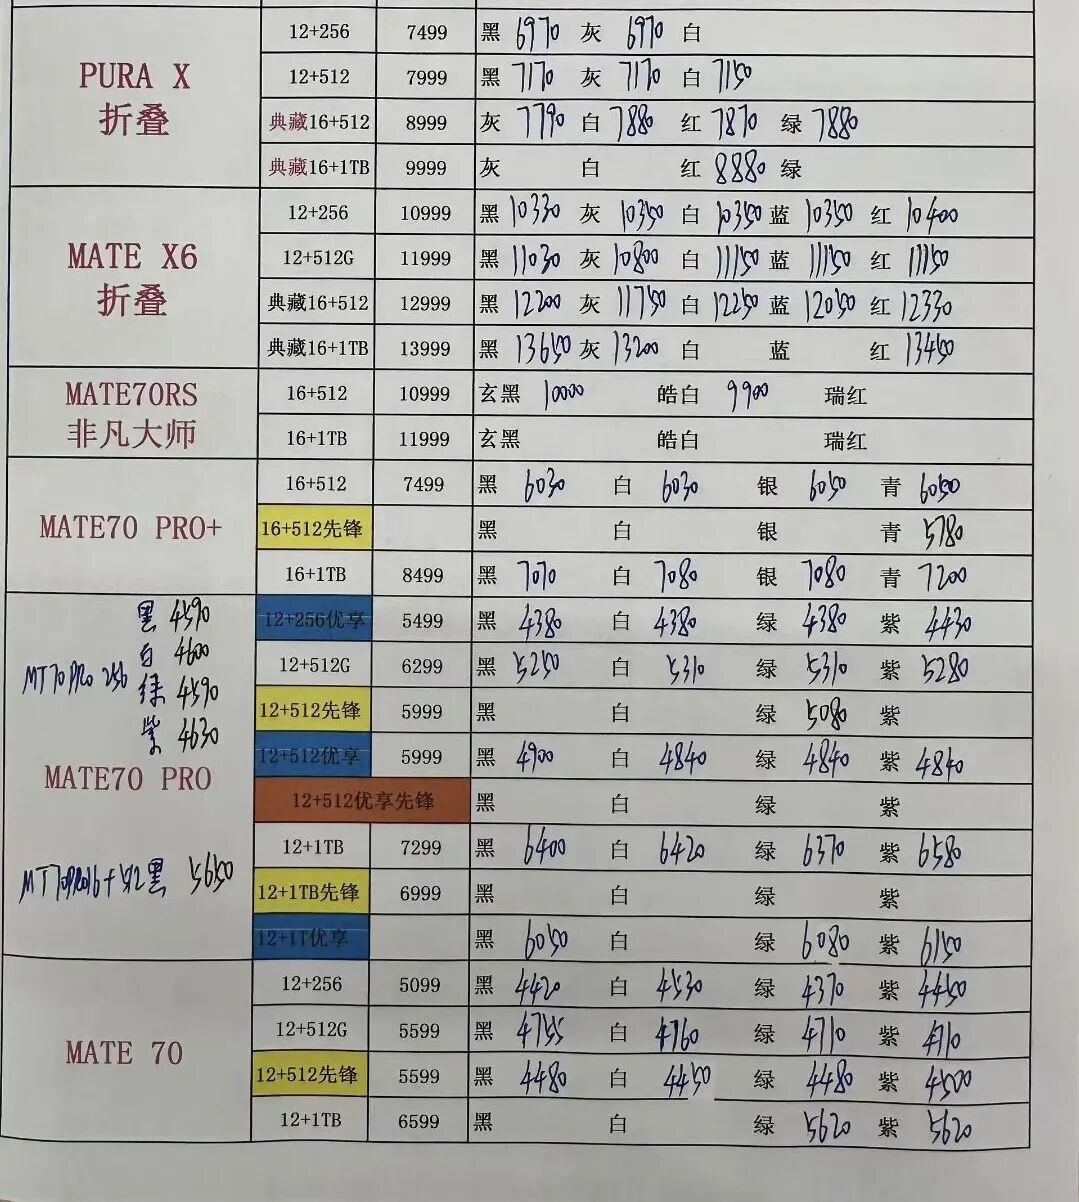 PURA X
折叠
12+256 7499 黑 6970 灰 6970 白
12+512 7999 黑 7170 灰 7170 白 7150
典藏16+512 8999 灰 7790 白 7880 红 7870 绿 7880
典藏16+1TB 9999 灰 白 红 8880 绿
MATE X6
折叠
12+256 10999 黑 10330 灰 10350 白 10350 蓝 10350 红 10400
12+512G 11999 黑 11030 灰 10800 白 11150 蓝 11150 红 11150
典藏16+512 12999 黑 12200 灰 11750 白 12250 蓝 12050 红 12330
典藏16+1TB 13999 黑 13650 灰 13200 白 蓝 红 13450
MATE70RS
非凡大师
16+512 10999 玄黑 10000 皓白 9900 瑞红
16+1TB 11999 玄黑 皓白 瑞红
MATE70 PRO+
16+512 7499 黑 6030 白 6030 银 6050 青 6050
16+512先锋 黑 白 银 青 5780
16+1TB 8499 黑 7070 白 7080 银 7080 青 7200
MT70PRO 256
黑 4590
白 4600
绿 4590
紫 4630
MATE70 PRO
MT70PRO16+512黑 5650
12+256优享 5499 黑 4380 白 4380 绿 4380 紫 4430
12+512G 6299 黑 5250 白 5310 绿 5310 紫 5280
12+512先锋 5999 黑 白 绿 5080 紫
12+512优享 5999 黑 4900 白 4840 绿 4840 紫 4840
12+512优享先锋 黑 白 绿 紫
12+1TB 7299 黑 6400 白 6420 绿 6370 紫 6580
12+1TB先锋 6999 黑 白 绿 紫
12+1T优享 黑 6050 白 绿 6080 紫 6150
MATE 70
12+256 5099 黑 4420 白 4530 绿 4370 紫 4450
12+512G 5599 黑 4755 白 4760 绿 4710 紫 4710
12+512先锋 5599 黑 4480 白 4450 绿 4480 紫 4500
12+1TB 6599 黑 白 绿 5620 紫 5620